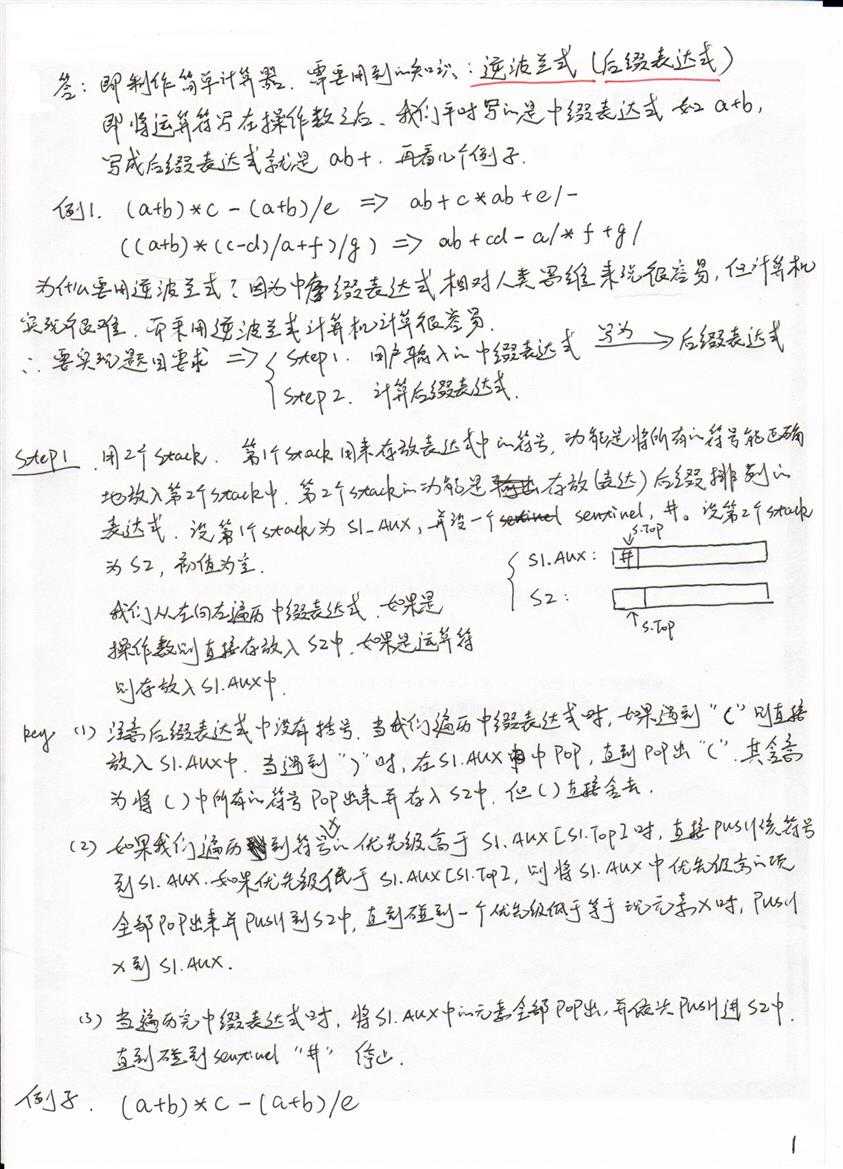 答：即制作简单计算器．需要用到的知识：逆波兰式（后缀表达式）
即将运算符写在操作数之后、我们平时写的是中缀表达式 如 a+b,
写成后缀表达式就是 ab+．再看几个例子．
例1. (a+b)*c-(a+b)/e => ab+c*ab+e/-
((a+b)*(c-d)/a+f)/g) => ab+cd-a/*f+g/
为什么要用逆波兰式？因为中缀表达式相对人类思维来说很容易, 但计算机
实现很难．而采用逆波兰式计算机计算很容易．
∴ 要实现题目要求 => { Step1. 用户输入的中缀表达式 写为→ 后缀表达式
Step2. 计算后缀表达式.
Step1. 用2个stack. 第1个stack用来存放表达式中的符号, 功能是将所有的符号能正确
地放入第2个stack中. 第2个stack的功能是存放(表达)后缀排列的
表达式. 设第1个stack为 S1_AUX, 并设一个 sentinel, #。设第2个stack
为 S2, 初值为空.
S.Top
S1.AUX: #
S2:
S.Top
我们从左向右遍历中缀表达式. 如果是
操作数则直接存放入 S2中. 如果是运算符
则存放入 S1.AUX中.
key (1) 注意后缀表达式中没有括号. 当我们遍历中缀表达式时, 如果遇到 "(" 则直接
放入 S1.AUX中. 当遇到 ")" 时, 在 S1.AUX中 POP, 直到 POP出 "(". 其含意
为将 ( ) 中所有的符号 POP出来并存入 S2中, 但 ( ) 直接舍去.
(2) 如果我们遍历到符号x的优先级高于 S1.AUX[S1.Top]时, 直接 PUSH 该符号
到 S1.AUX. 如果优先级低于 S1.AUX[S1.Top], 则将 S1.AUX 中优先级高的项
全部 POP出来并 PUSH到 S2中, 直到碰到一个优先级低于等于 现元素x时, PUSH
x 到 S1.AUX.
(3) 当遍历完中缀表达式时, 将 S1.AUX中的元素全部 POP出, 并依次 PUSH进 S2中.
直到碰到 sentinel "#" 停止.
例子. (a+b)*c-(a+b)/e
1